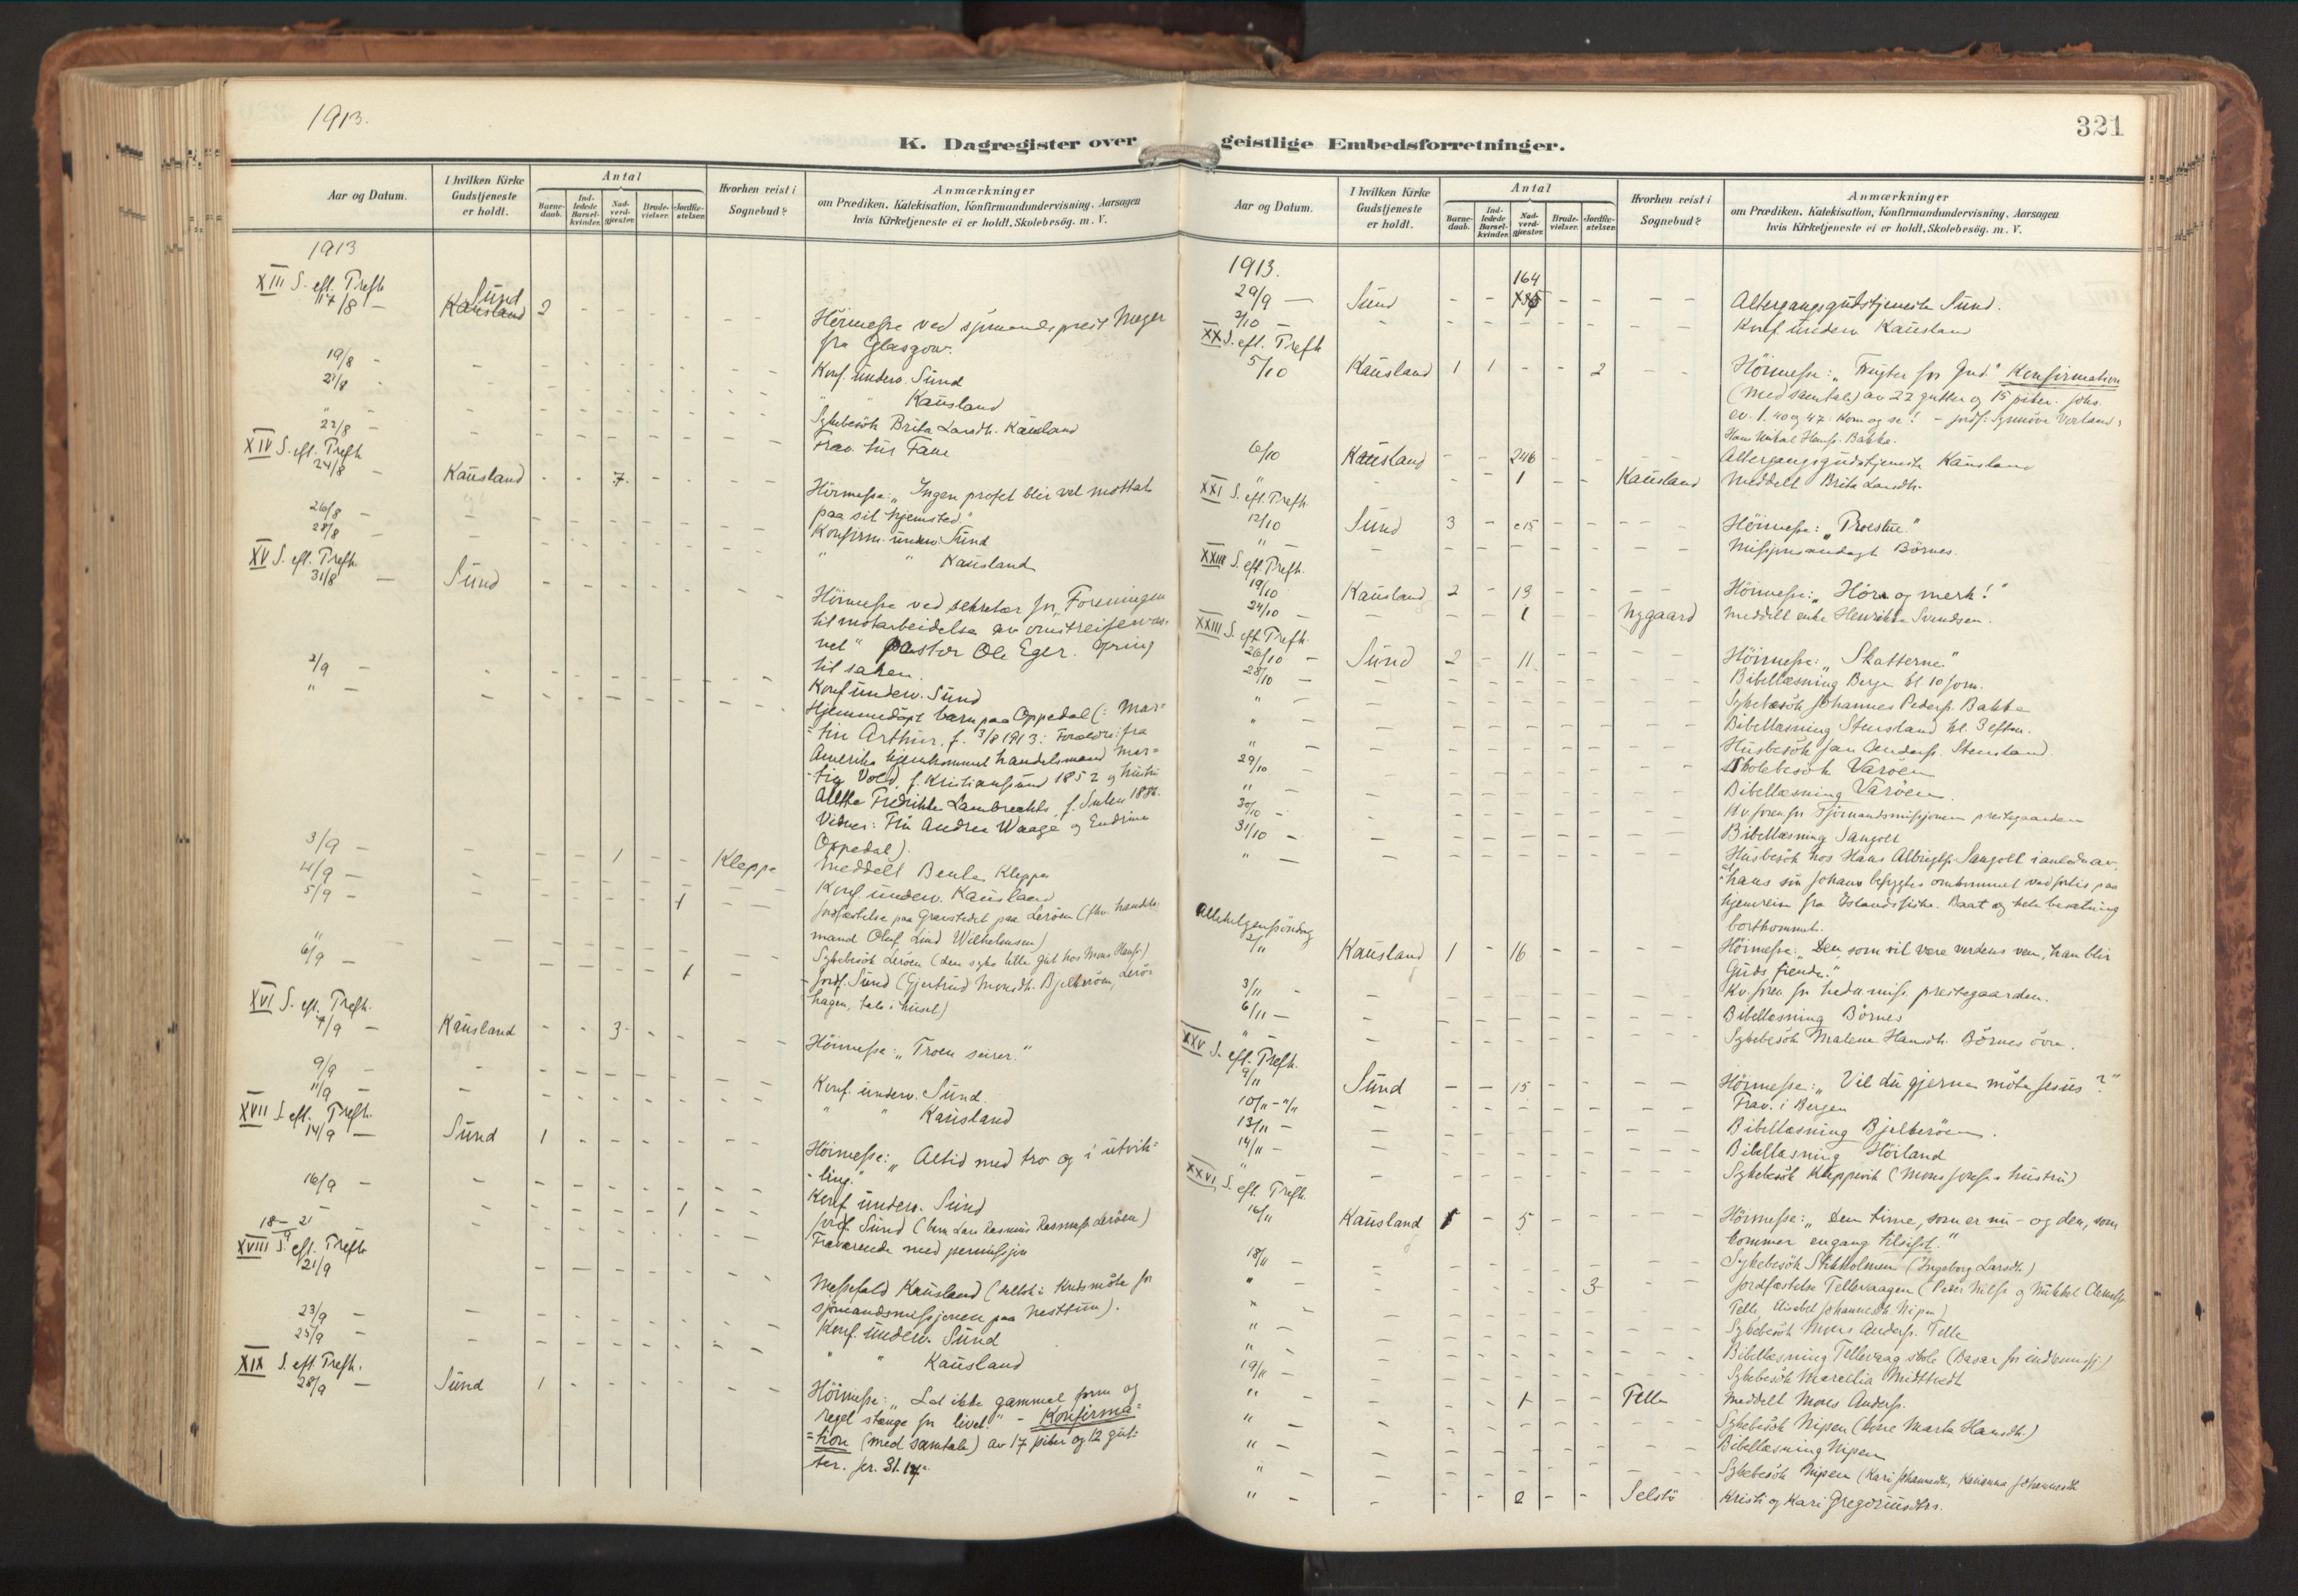 1913.
K. Dagregister over
Aar og Datum.
I hvilken Kirke Gudstjeneste er holdt.
Antal
Barne-daab.
Ind-ledede Barsel-kvinder.
Nad-verd-gjester.
Brude-vielser.
Jordfæ-stelser.
Hvorhen reist i Sognebud?
Anmærkninger
om Prædiken, Katekisation, Konfirmandundervisning, Aarsagen
hvis Kirketjeneste ei er holdt, Skolebesög. m. V.
1913
XIII S. eft. Trefh
17/8 – Sund Kausland 2
Höimesse ved sjömandsprest Meyer
fra Glasgow.
19/8 – Konf. underv. Sund
21/8 " " Kausland
" Sykebesök Brita Larsdh. Kausland
22/8 – Frav. hus Fane
XIV S. eft. Trefh
24/8 – Kausland 7 Höimesse: „Ingen profet blir vel mottat
paa sit hjemsted."
26/8 – Konfirm. underv. Sund
28/8 – " " Kausland
XV S. eft. Trefh.
31/8 – Sund Höimesse ved sekretær for „Foreningen
til motarbeidelse av omstreifervæs-
net" pastor Ole Eger. Ofring
til saken.
2/9 – Konf underv. Sund
" – Hjemmedöpt barn paa Oppedal (: Mar-
=tin Arthur, f. 3/8 1913: Forældre: fra
Amerika hjemkommet handelsmand Mar=
-tin Vold, f. Kristiansund 1852 og hustru
Fredrikke Lambrechts f. Sulen
Vidner: Fru Andrea Waage og Endrine
Oppedal).
3/9 – 1 Kleppe Meddelt Benta Kleppe
4/9 – Konf. underv. Kausland
5/9 – 1 Jordfæstelse paa Gravstedet paa Leröen (fhv. handels-
mand Oluf Lind Wilhelmsen)
" – Sykebesök Leröen (den syke lille gut hos Mons Hanss.)
6/9 – 1 Jordf. Sund (Gjertrud Monsdh. Bjelkeröen, Lerö-
hagen, tale i huset)
XVI S. eft. Trefh.
7/9 – Kausland 3 Höimesse: „Troen seirer."
9/9 – Konf. underv. Sund.
11/9 – " " Kausland
XVII S. eft. Trefh.
14/9 – Sund 1 Höimesse: „Altid med tro og i utvik=
-ling."
16/9 – Konf underv. Sund
– 1 Jordf. Sund (barn Lars Rasmus Rasmuss. Leröen)
18–21/9 Fraværende med permissjon
XVIII S. eft. Trefh
21/9 Messefald Kausland (deltok i Kredsmöte for
sjömandsmissjonen paa Nesttun).
23/9 – Konf. underv. Sund
25/9 – " " Kausland
XIX S. eft. Trefh.
28/9 – Sund 1 Höimesse: „Lat ikke gammel form og
regel stænge for livet." – Konfirma=
=tion (med samtale) av 17 piker og 12 gut-
ter. Jer. 31.
321
geistlige Embedsforretninger.
Aar og Datum.
I hvilken Kirke Gudstjeneste er holdt.
Antal
Barne-daab.
Ind-ledede Barsel-kvinder.
Nad-verd-gjæster.
Brude-vielser.
Jordfæ-stelser.
Hvorhen reist i Sognebud?
Anmærkninger
om Prædiken, Katekisation, Konfirmandundervisning, Aarsagen
hvis Kirketjeneste ei er holdt, Skolebesög. m. V.
1913.
29/9 – Sund 164 Altergangsgudstjeneste Sund.
2/10 – Konf. underv. Kausland
XX S. eft. Trefh
5/10 Kausland 1 1 2 Höimesse: „Frugter for Gud." Konfirmation
(Med samtale) av 22 gutter og 15 piker. Johs.
ev. 1. 40 og 47: Kom og se! – Jordf: Synnöve Vorland,
Hans Mikal Hanss. Bakke.
6/10 Kausland 246 Altergangsgudstjeneste Kausland
" 1 Kausland Meddelt Brita Larsdh.
XXI S. eft. Trefh.
12/10 Sund 3 15 Höimesse: „Troestu"
" – Missjonsandagt Börnes.
XXII S. eft. Trefh.
19/10 Kausland 2 19 Höimesse: „Höra og merk!"
24/10 – 1 Nygaard Meddelt enke Henrikka Svendsen.
XXIII S. eft Trefh.
26/10 – Sund 2 11 Höimesse: „Skatterne."
28/10 – Bibellæsning Berge kl. 10 form.
" – Sykebesök Johannes Peders. Bakke
" – Bibellæsning Stensland kl. 3 efterm.
" Husbesök Jan Anderss. Stensland.
29/10 – Skolebesök Varöen
" – Bibellæsning Varöen
30/10 – Kv. foren for Sjömandsmissjonen prestegaarden
31/10 – Bibellæsning Sangolt
" – Husbesök hos Hans Albrigts. Sangolt i anledn. av,
at hans sön Johan befrygtes omkommet ved forlis paa
hjemreise fra Islandsfiske. Baat og hele besætning
bortkommet.
Allehelgensöndag
2/11 Kausland 1 16 Höimesse: „Den, som vil være verdens ven, han blir
Guds fiende."
3/11 – Kv. foren for hedn. miss. prestegaarden.
6/11 – Bibellæsning Börnes
" – Sykebesök Malene Hansdh. Börnes övre.
XXV S. eft. Trefh.
9/11 Sund 15 Höimesse: „Vil du gjerne möta Jesus?"
10/11 – Frav. i Bergen
13/11 – Bibellæsning Bjelkeröen.
14/11 – Bibellæsning Hörland
" Sykebesök Kleppevik (Mons Josefs. s hustru)
XXVI S. eft. Trefh.
16/11 Kausland 1 5 Höimesse: „Den time, som er nu – og den, som
kommer engang tilsist."
18/11 – Sykebesök Stikkholmen (Ingeborg Larsdh.)
" 3 Jordfæstelse Tellevaagen (Peder Nilss. og Mikkel Clemetss.
Telle, Elisabet Johannesdh. Nipen)
" – Sykebesök Mons Anderss. Telle
" – Bibellæsning Tellevaag skole (Basar for indremissj.)
19/11 – Sykebesök Marcellia Midttvedt
" 1 Telle Meddelt Mons Anderss.
" – Sykebesök Nipen (kone Marta Hansdh.)
" – Bibellæsning Nipen
" – Sykebesök Nipen (Kari Johannesdh, Karianna Johannesdh
" – 2 Selstö Kristi og Kari Gregoriusdtrs.